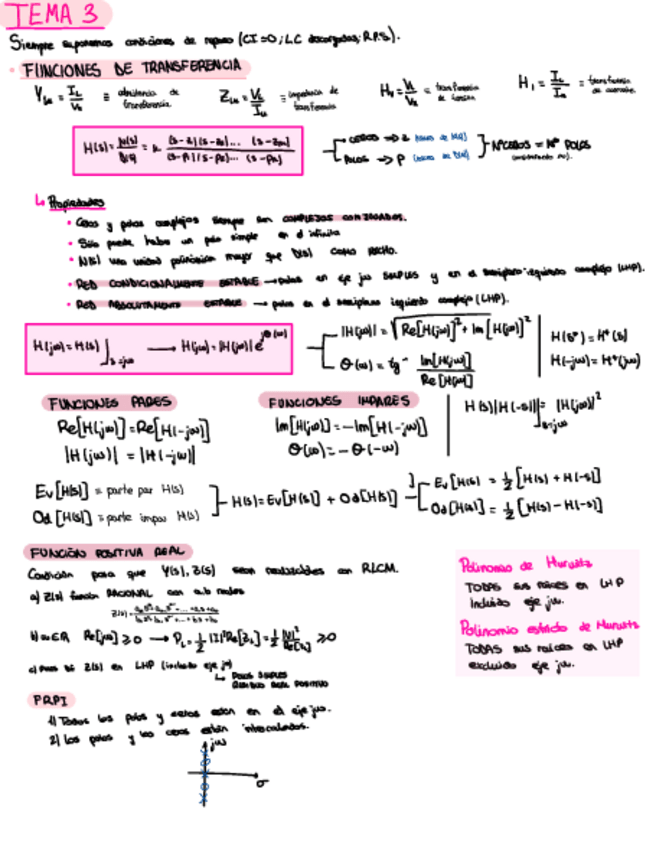 TEMA 3
Siempre suponemos condiciones de reposo (CI=0; LC descargados; R.P.S).
· FUNCIONES DE TRANSFERENCIA
Y₂₁ = I₂/V₁ ≡ admitancia de transferencia
Z = V₂/I ≡ impedancia de transferencia
Hᵥ = V₂/V = transferencia de tensión
H_I = I₂/I = transferencia de corriente
H(s) = N(s)/D(s) = k (s-z₁)(s-z₂)... (s-zₘ) / (s-p₁)(s-p₂)... (s-pₙ)
CEROS => z
POLOS => P
Nº CEROS = Nº POLOS
↳ Propiedades
• Ceros y polos complejos siempre son COMPLEJOS CONJUGADOS.
• Sólo puede haber un polo simple en el infinito
• N(s) una unidad polinómica mayor que D(s) como mucho.
• RED CONDICIONALMENTE ESTABLE → polos en eje jω SIMPLES y en el semiplano izquierdo complejo (LHP).
• RED ABSOLUTAMENTE ESTABLE → polos en el semiplano izquierdo complejo (LHP).
H(jω) = H(s)]s=jω → H(jω) = |H(jω)| e^jθ(ω)
|H(jω)| = √Re[H(jω)]² + Im[H(jω)]²
θ(ω) = tg⁻ Im[H(jω)] / Re[H(jω)]
H(s*) = H*(s)
H(-jω) = H*(jω)
FUNCIONES PARES
Re[H(jω)] = Re[H(-jω)]
|H(jω)| = |H(-jω)|
FUNCIONES IMPARES
Im[H(jω)] = -Im[H(-jω)]
θ(ω) = -θ(-ω)
H(s)|H(-s)|]s=jω = |H(jω)|²
Ev[H(s)] = parte par H(s)
Od[H(s)] = parte impar H(s)
H(s) = Ev[H(s)] + Od[H(s)]
Ev[H(s)] = 1/2 [H(s) + H(-s)]
Od[H(s)] = 1/2 [H(s) - H(-s)]
FUNCIÓN POSITIVA REAL
Condición para que Y(s), Z(s) sean realizables con RLCM.
a) Z(s) función RACIONAL con a,b reales
Re[jω] ≥ 0 → P = 1/2 |I|² Re[Z] = 1/2 |V|²/Re[Z] ≥ 0
c) Polos de Z(s) en LHP (incluido eje jω)
↳ POLOS SIMPLES
RESIDUO REAL POSITIVO
FRPI
1) Todos los polos y ceros están en el eje jω.
2) Los polos y los ceros están intercalados.
jω
σ
Polinomio de Hurwitz
TODAS sus raíces en LHP
incluido eje jω.
Polinomio estricto de Hurwitz
TODAS sus raíces en LHP
excluido eje jω.